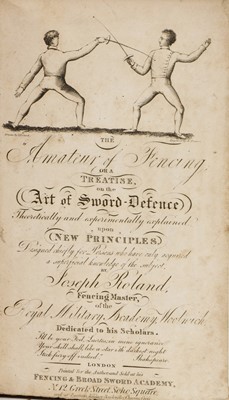 THE
Amateur of Fencing
OR A
TREATISE,
on the
Art of Sword-Defence
Theoretically and experimentally explained
upon
NEW PRINCIPLES
Designed chiefly for Persons who have only acquired
a superficial knowledge of the subject,
BY
Joseph Roland,
Fencing Master,
of the
Royal Military Academy, Woolwich
Dedicated to his Scholars.
I'll be your Foil, Laertes, in mine ignorance
Your skill shall, like a star i'th' darkest night
Stick fiery off indeed. Shakespeare
LONDON
Printed for the Author and Sold at his
FENCING & BROAD SWORD ACADEMY,
Street Soho Square